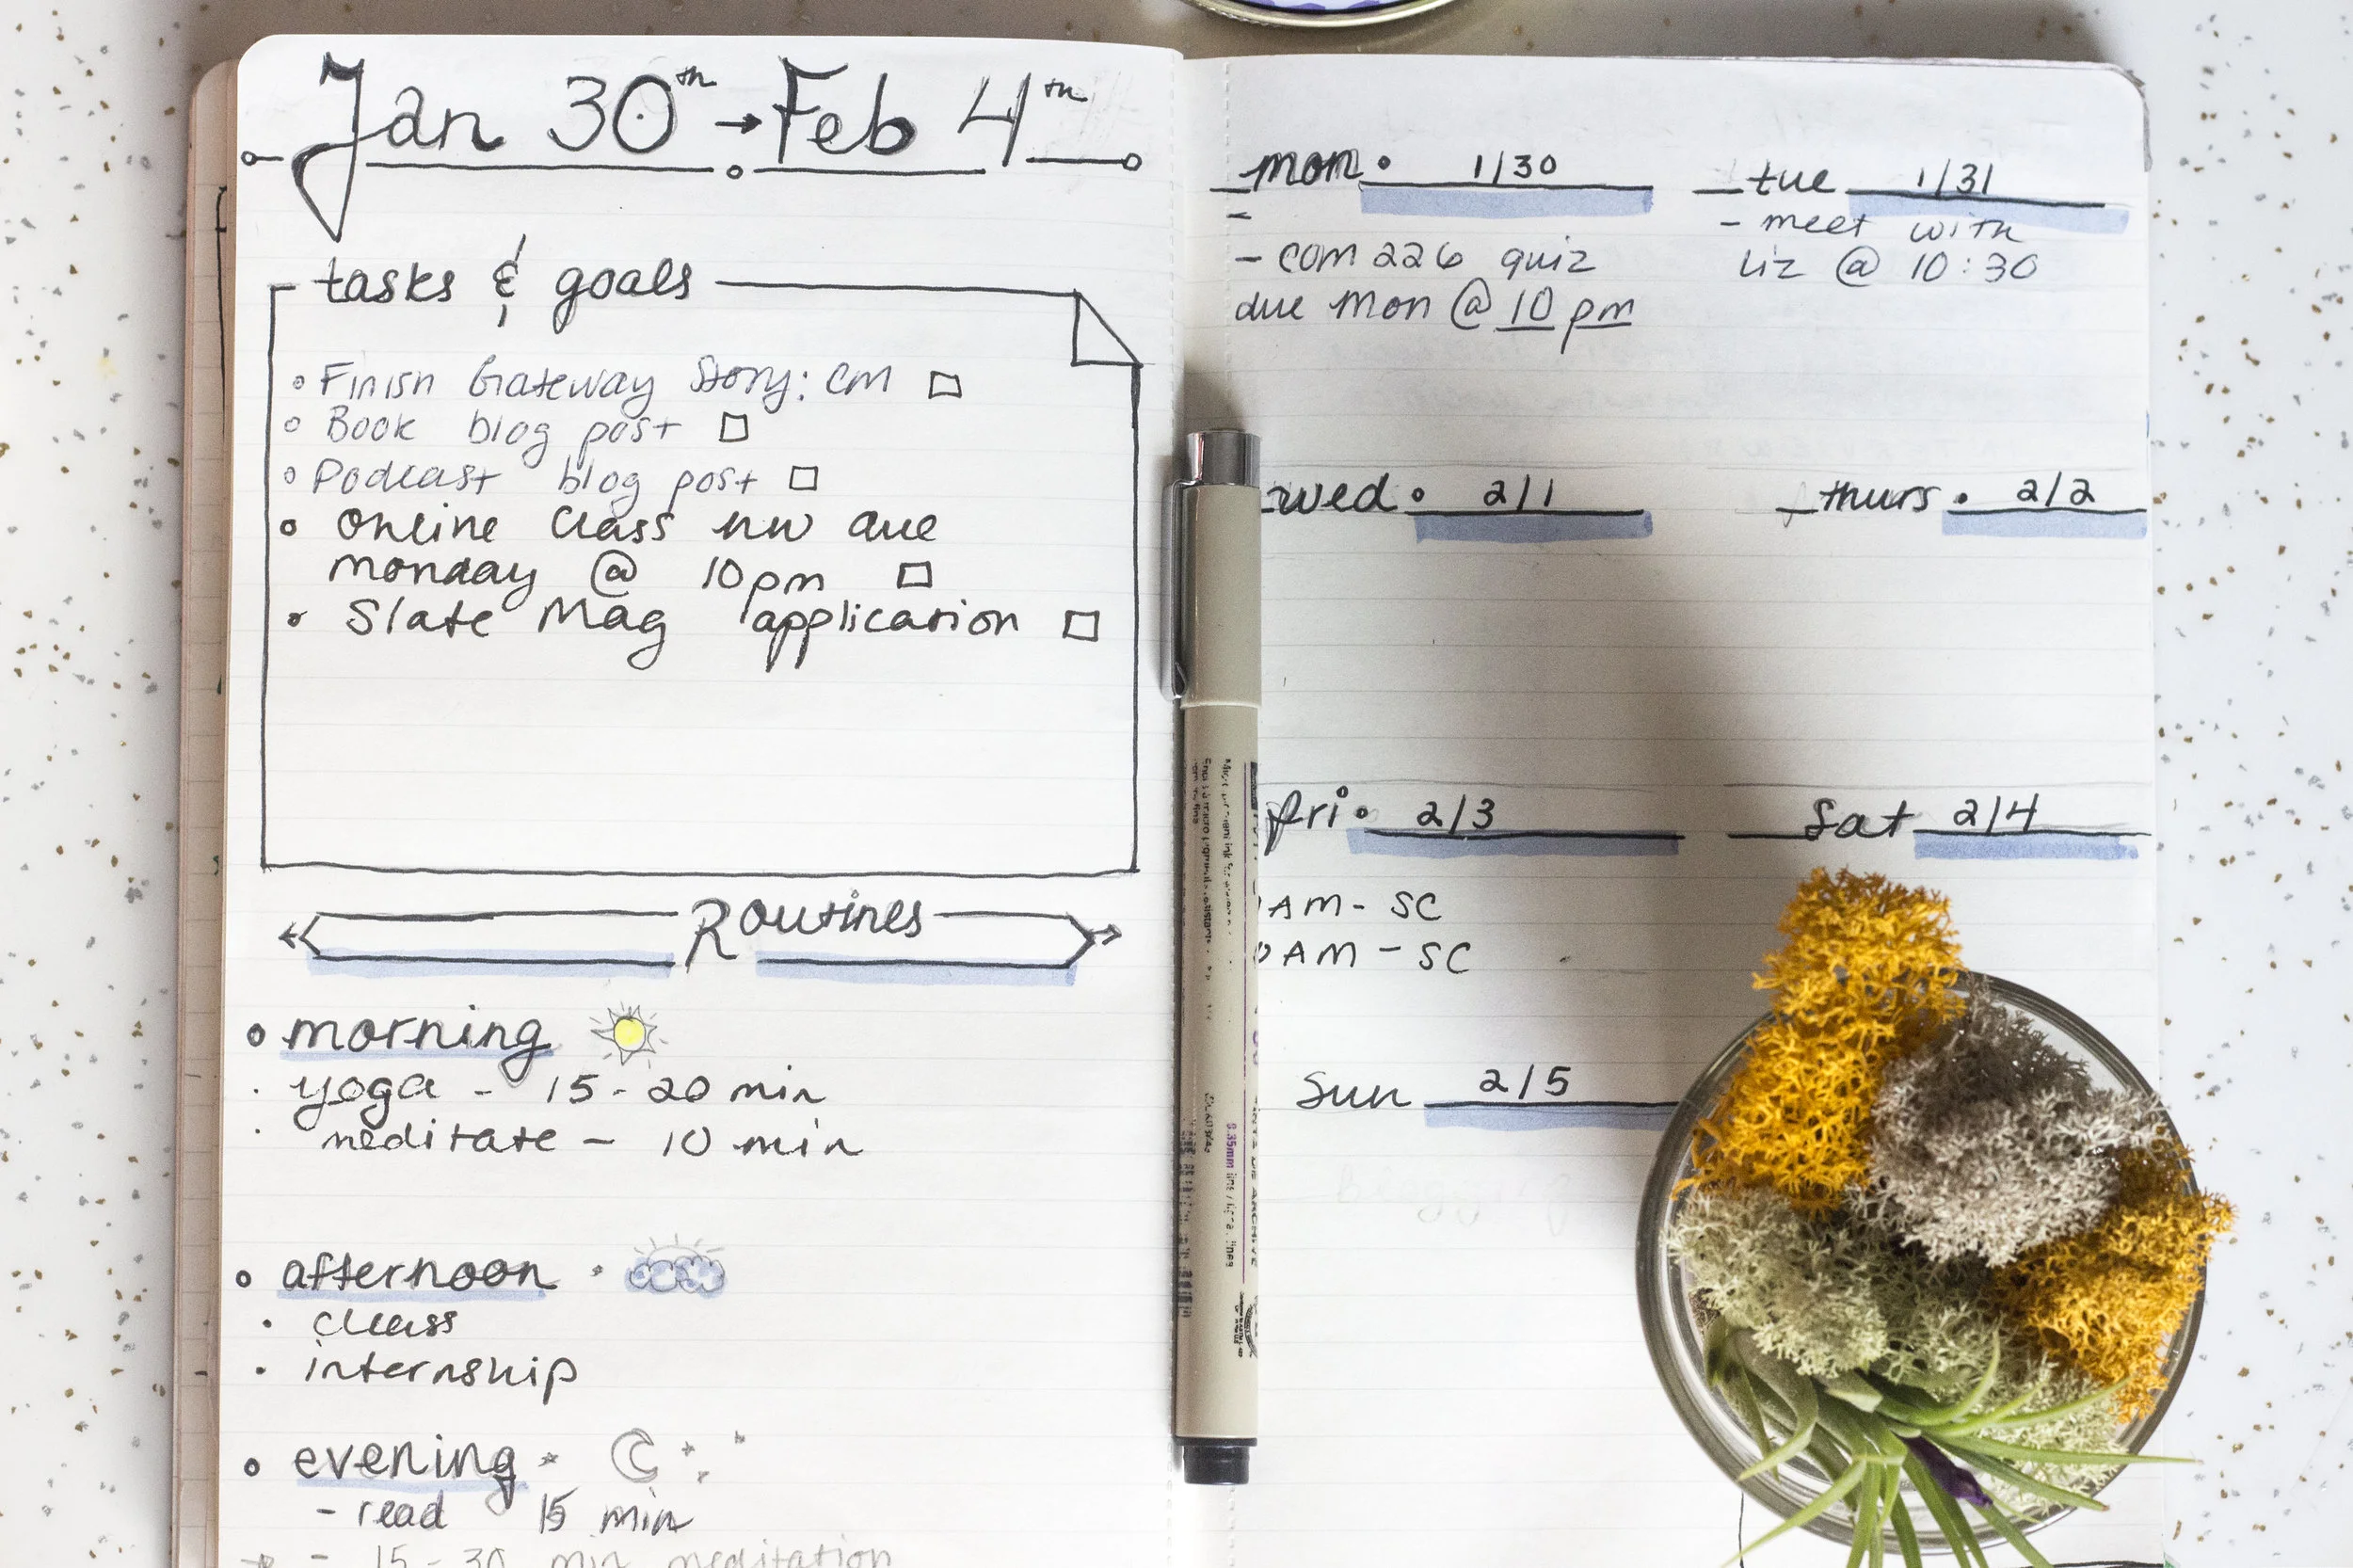 Jan 30th → Feb 4th
tasks & goals
Finish Gateway Story: CM
Book blog post
Podcast blog post
Online Class HW due
monday @ 10pm
Slate Mag application
Routines
morning
yoga - 15-20 min
meditate - 10 min
afternoon
class
internship
evening
- read 15 min
- 15-30 min meditation
mon. 1/30
-
- com 226 quiz
due Mon @ 10 pm
tue 1/31
- meet with
Liz @ 10:30
wed. 2/1
thurs. 2/2
fri. 2/3
AM - SC
AM - SC
Sat 2/4
Sun 2/5
blogging
0.35mm